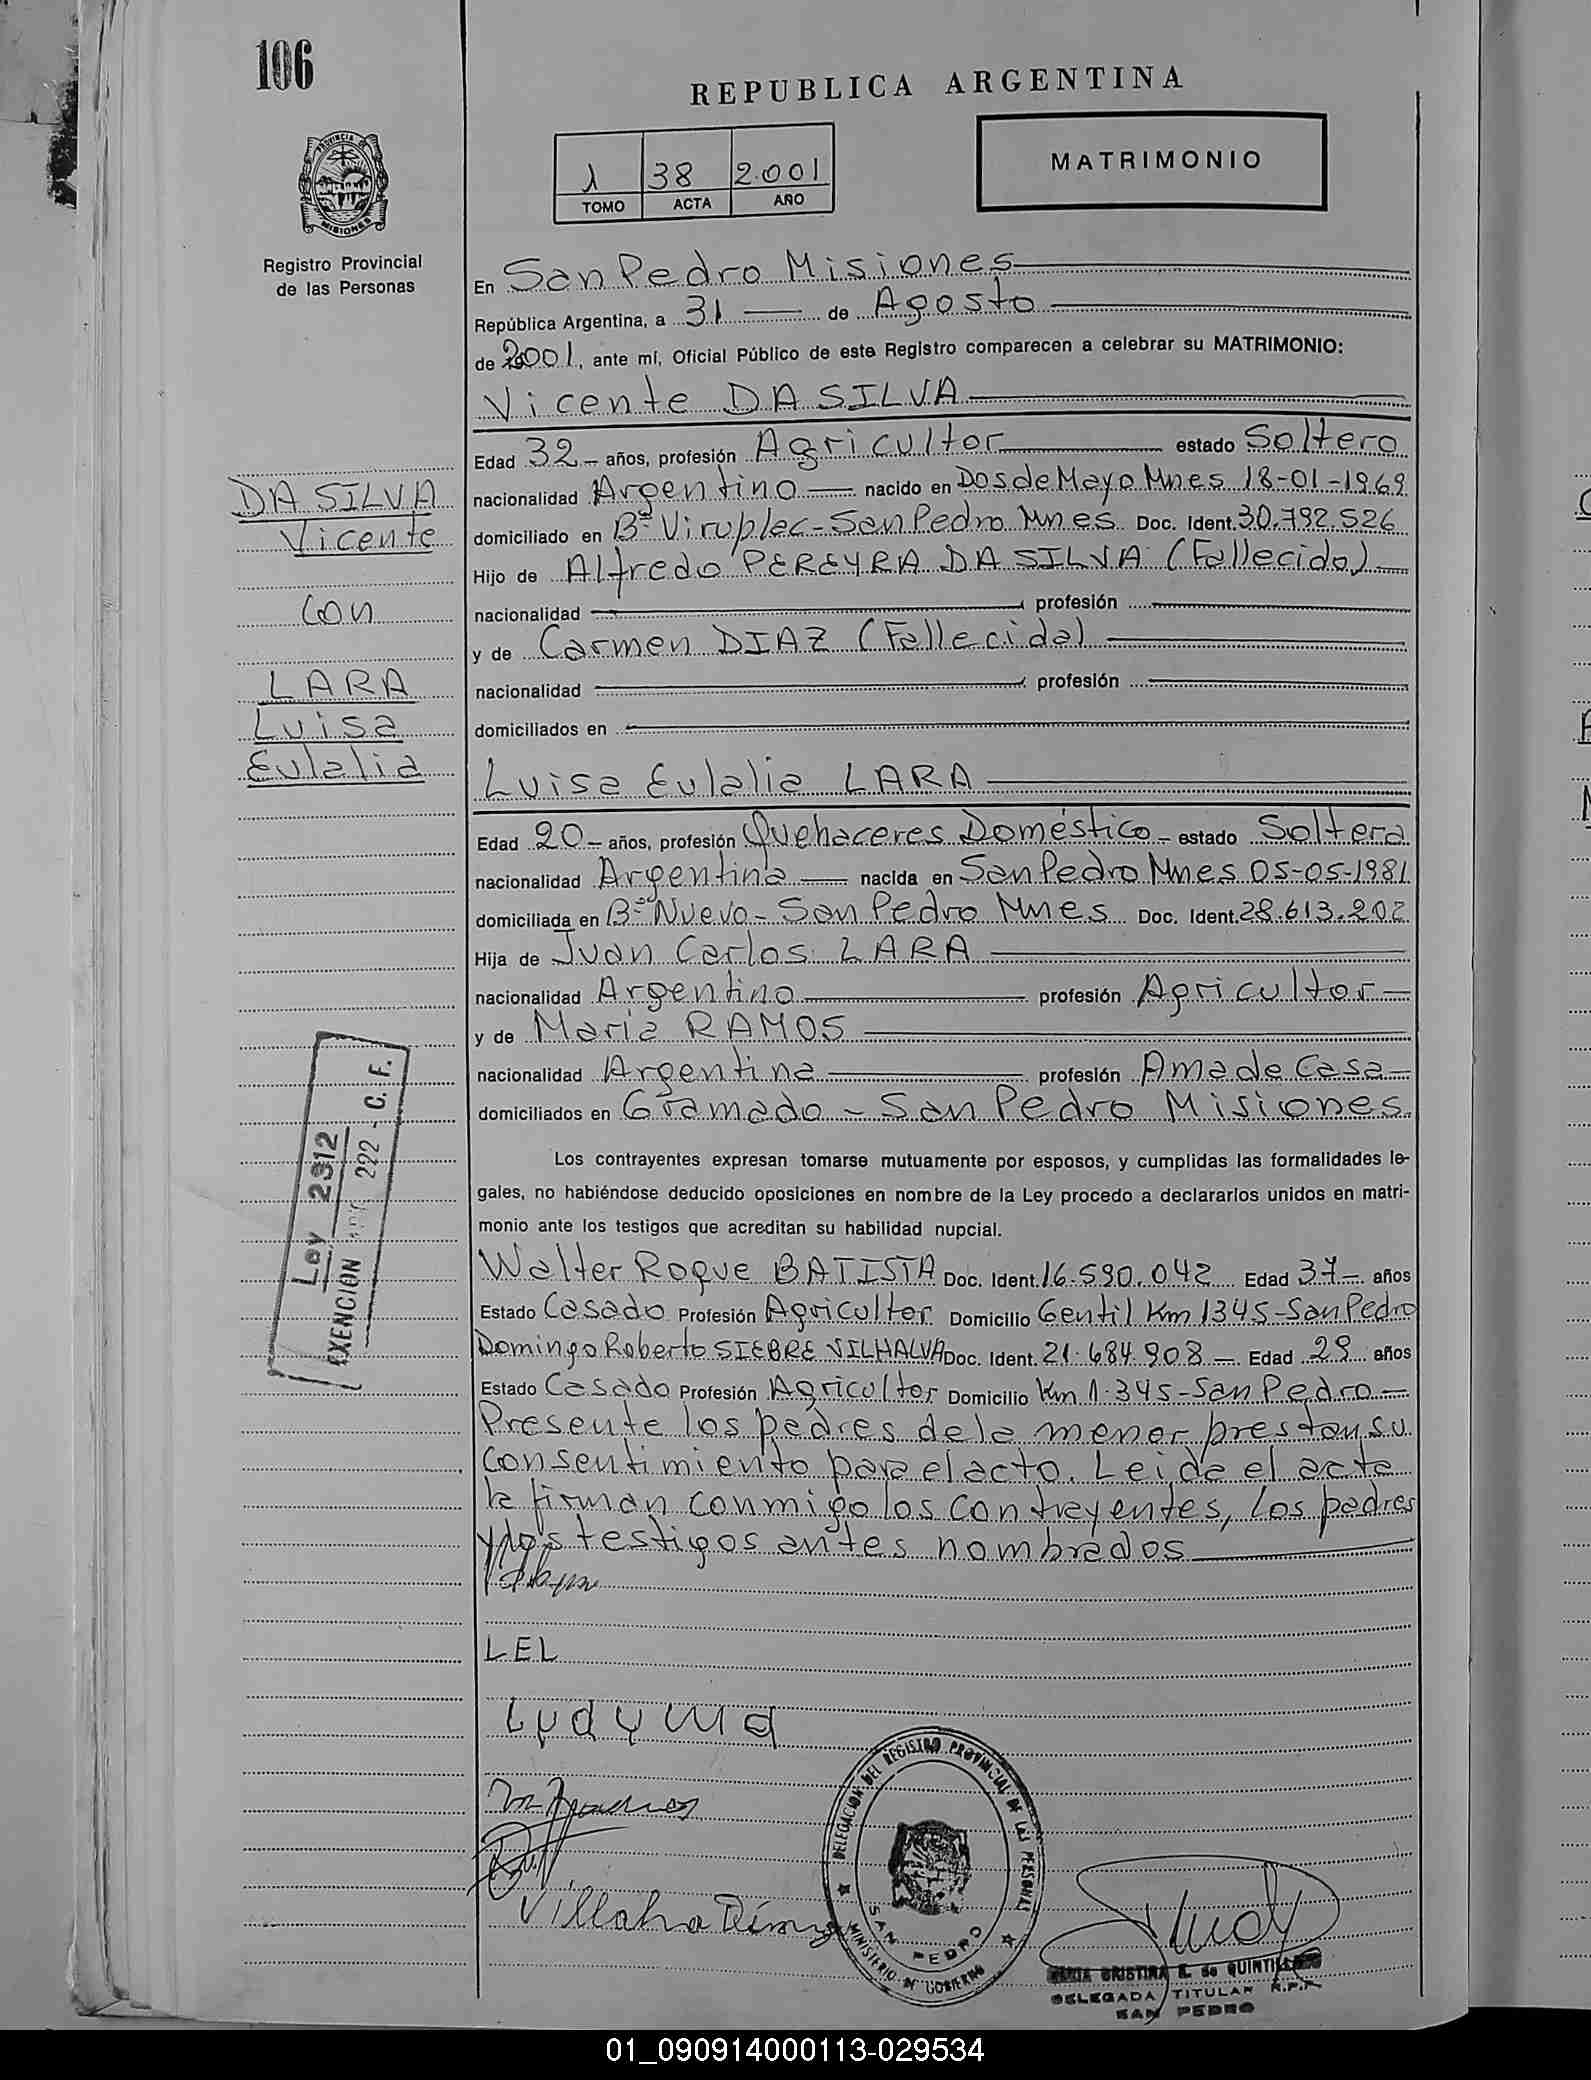 106
REPUBLICA ARGENTINA
1 38 2.001
TOMO ACTA AÑO
MATRIMONIO
PROVINCIA DE
MISIONES
Registro Provincial
de las Personas
En San Pedro Misiones
República Argentina, a 31 de Agosto
de 2001, ante mí, Oficial Público de este Registro comparecen a celebrar su MATRIMONIO:
Vicente DA SILVA
Edad 32 años, profesión Agricultor estado Soltero
nacionalidad Argentino nacido en Dos de Mayo Mnes 18-01-1969
domiciliado en Bº Viruplec - San Pedro Mnes Doc. Ident. 30.792.526
Hijo de Alfredo PEREYRA DA SILVA (Fallecido)
nacionalidad profesión
y de Carmen DIAZ (Fallecida)
nacionalidad profesión
domiciliados en
DA SILVA
Vicente
Con
LARA
Luisa
Eulalia
Luisa Eulalia LARA
Edad 20 años, profesión Quehaceres Doméstico estado Soltera
nacionalidad Argentina nacida en San Pedro Mnes 05-05-1981
domiciliada en Bº Nuevo - San Pedro Mnes Doc. Ident. 28.613.202
Hija de Juan Carlos LARA
nacionalidad Argentino profesión Agricultor
y de Maria RAMOS
nacionalidad Argentina profesión Ama de Casa
domiciliados en Gramado - San Pedro Misiones.
Los contrayentes expresan tomarse mutuamente por esposos, y cumplidas las formalidades le-
gales, no habiéndose deducido oposiciones en nombre de la Ley procedo a declararlos unidos en matri-
monio ante los testigos que acreditan su habilidad nupcial.
Ley 2312
EXENCION 222 - C. F.
Walter Roque BATISTA Doc. Ident. 16.590.042 Edad 37 años
Estado Casado Profesión Agricultor Domicilio Gentil Km 1345 - San Pedro
Domingo Roberto SIEBRE VILHALVA Doc. Ident. 21.684.908 Edad 29 años
Estado Casado Profesión Agricultor Domicilio Km 1.345 - San Pedro
Presente los padres de la menor prestan su
consentimiento para el acto. Leida el acta
la firman conmigo los contrayentes, los padres
y los testigos antes nombrados
LEL
DELEGACION DEL REGISTRO PROVINCIAL DE LAS PERSONAS
SAN PEDRO
MINISTERIO DE GOBIERNO
MARIA CRISTINA E. de
DELEGADA TITULAR R.P.P.
SAN PEDRO
01_090914000113-029534